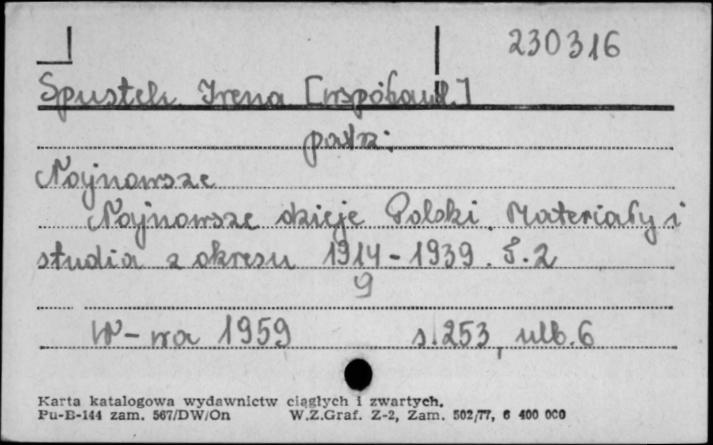 230316
Spustek Irena [współaut.]
patrz:
Najnowsze
Najnowsze dzieje Polski. Materiały i
studia z okresu 1914-1939. T. 2
9
W-wa 1959 s. 253, nlb. 6
Karta katalogowa wydawnictw ciągłych i zwartych.
Pu-B-144 zam. 567/DW/On W.Z.Graf. Z-2, Zam. 502/77, 6 400 000